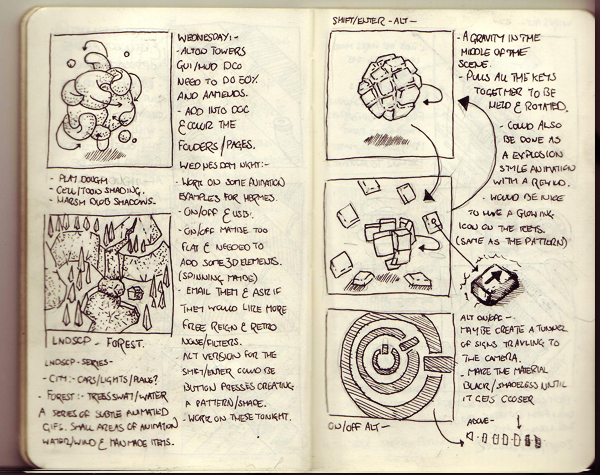 WEDNESDAY:-
- ALTON TOWERS
GUI/HUD DOC
NEED TO DO 60%
AND AMMENDS.
- ADD INTO DOC
& COLOR THE
FOLDERS/PAGES.
WEDNESDAY NIGHT:-
- WORK ON SOME ANIMATION
EXAMPLES FOR HERMES.
- ON/OFF & USB.
- ON/OFF MAYBE TOO
FLAT & NEEDED TO
ADD SOME 3D ELEMENTS.
(SPINNING MAYBE)
- EMAIL THEM & ASK IF
THEM WOULD LIKE MORE
FREE REIGN & RETRO
NOISE/FILTERS.
- ALT VERSION FOR THE
SHIFT/ENTER COULD BE
BUTTON PRESSES CREATING
A PATTERN/SHAPE.
- WORK ON THESE TONIGHT.
- PLAY DOUGH
- CELL/TOON SHADING.
- HARSH BLOB SHADOWS.
LNDSCP - FOREST.
LNDSCP-SERIES-
- CITY:- CARS/LIGHTS/PLANE?
- FOREST:- TREES SWAY/WATER
A SERIES OF SUBTLE ANIMATED
GIFS. SMALL AREAS OF ANIMATION
WATER/WIND & MAN MADE ITEMS.
SHIFT/ENTER - ALT -
- A GRAVITY IN THE
MIDDLE OF THE
SCENE.
- PULLS ALL THE KEYS
TOGETHER TO BE
HELD & ROTATED.
- COULD ALSO
BE DONE AS
A EXPLOSION
STYLE ANIMATION
WITH A REWIND.
- WOULD BE NICE
TO HAVE A GLOWING
ICON ON THE KEYS.
(SAME AS THE PATTERN)
ALT ON/OFF:-
MAYBE CREATE A TUNNEL
OF SIGNS TRAVLING TO
THE CAMERA.
- MAKE THE MATERIAL
BLACK/SHADELESS UNTIL
IT GETS CLOSER
ABOVE -
ON/OFF ALT -